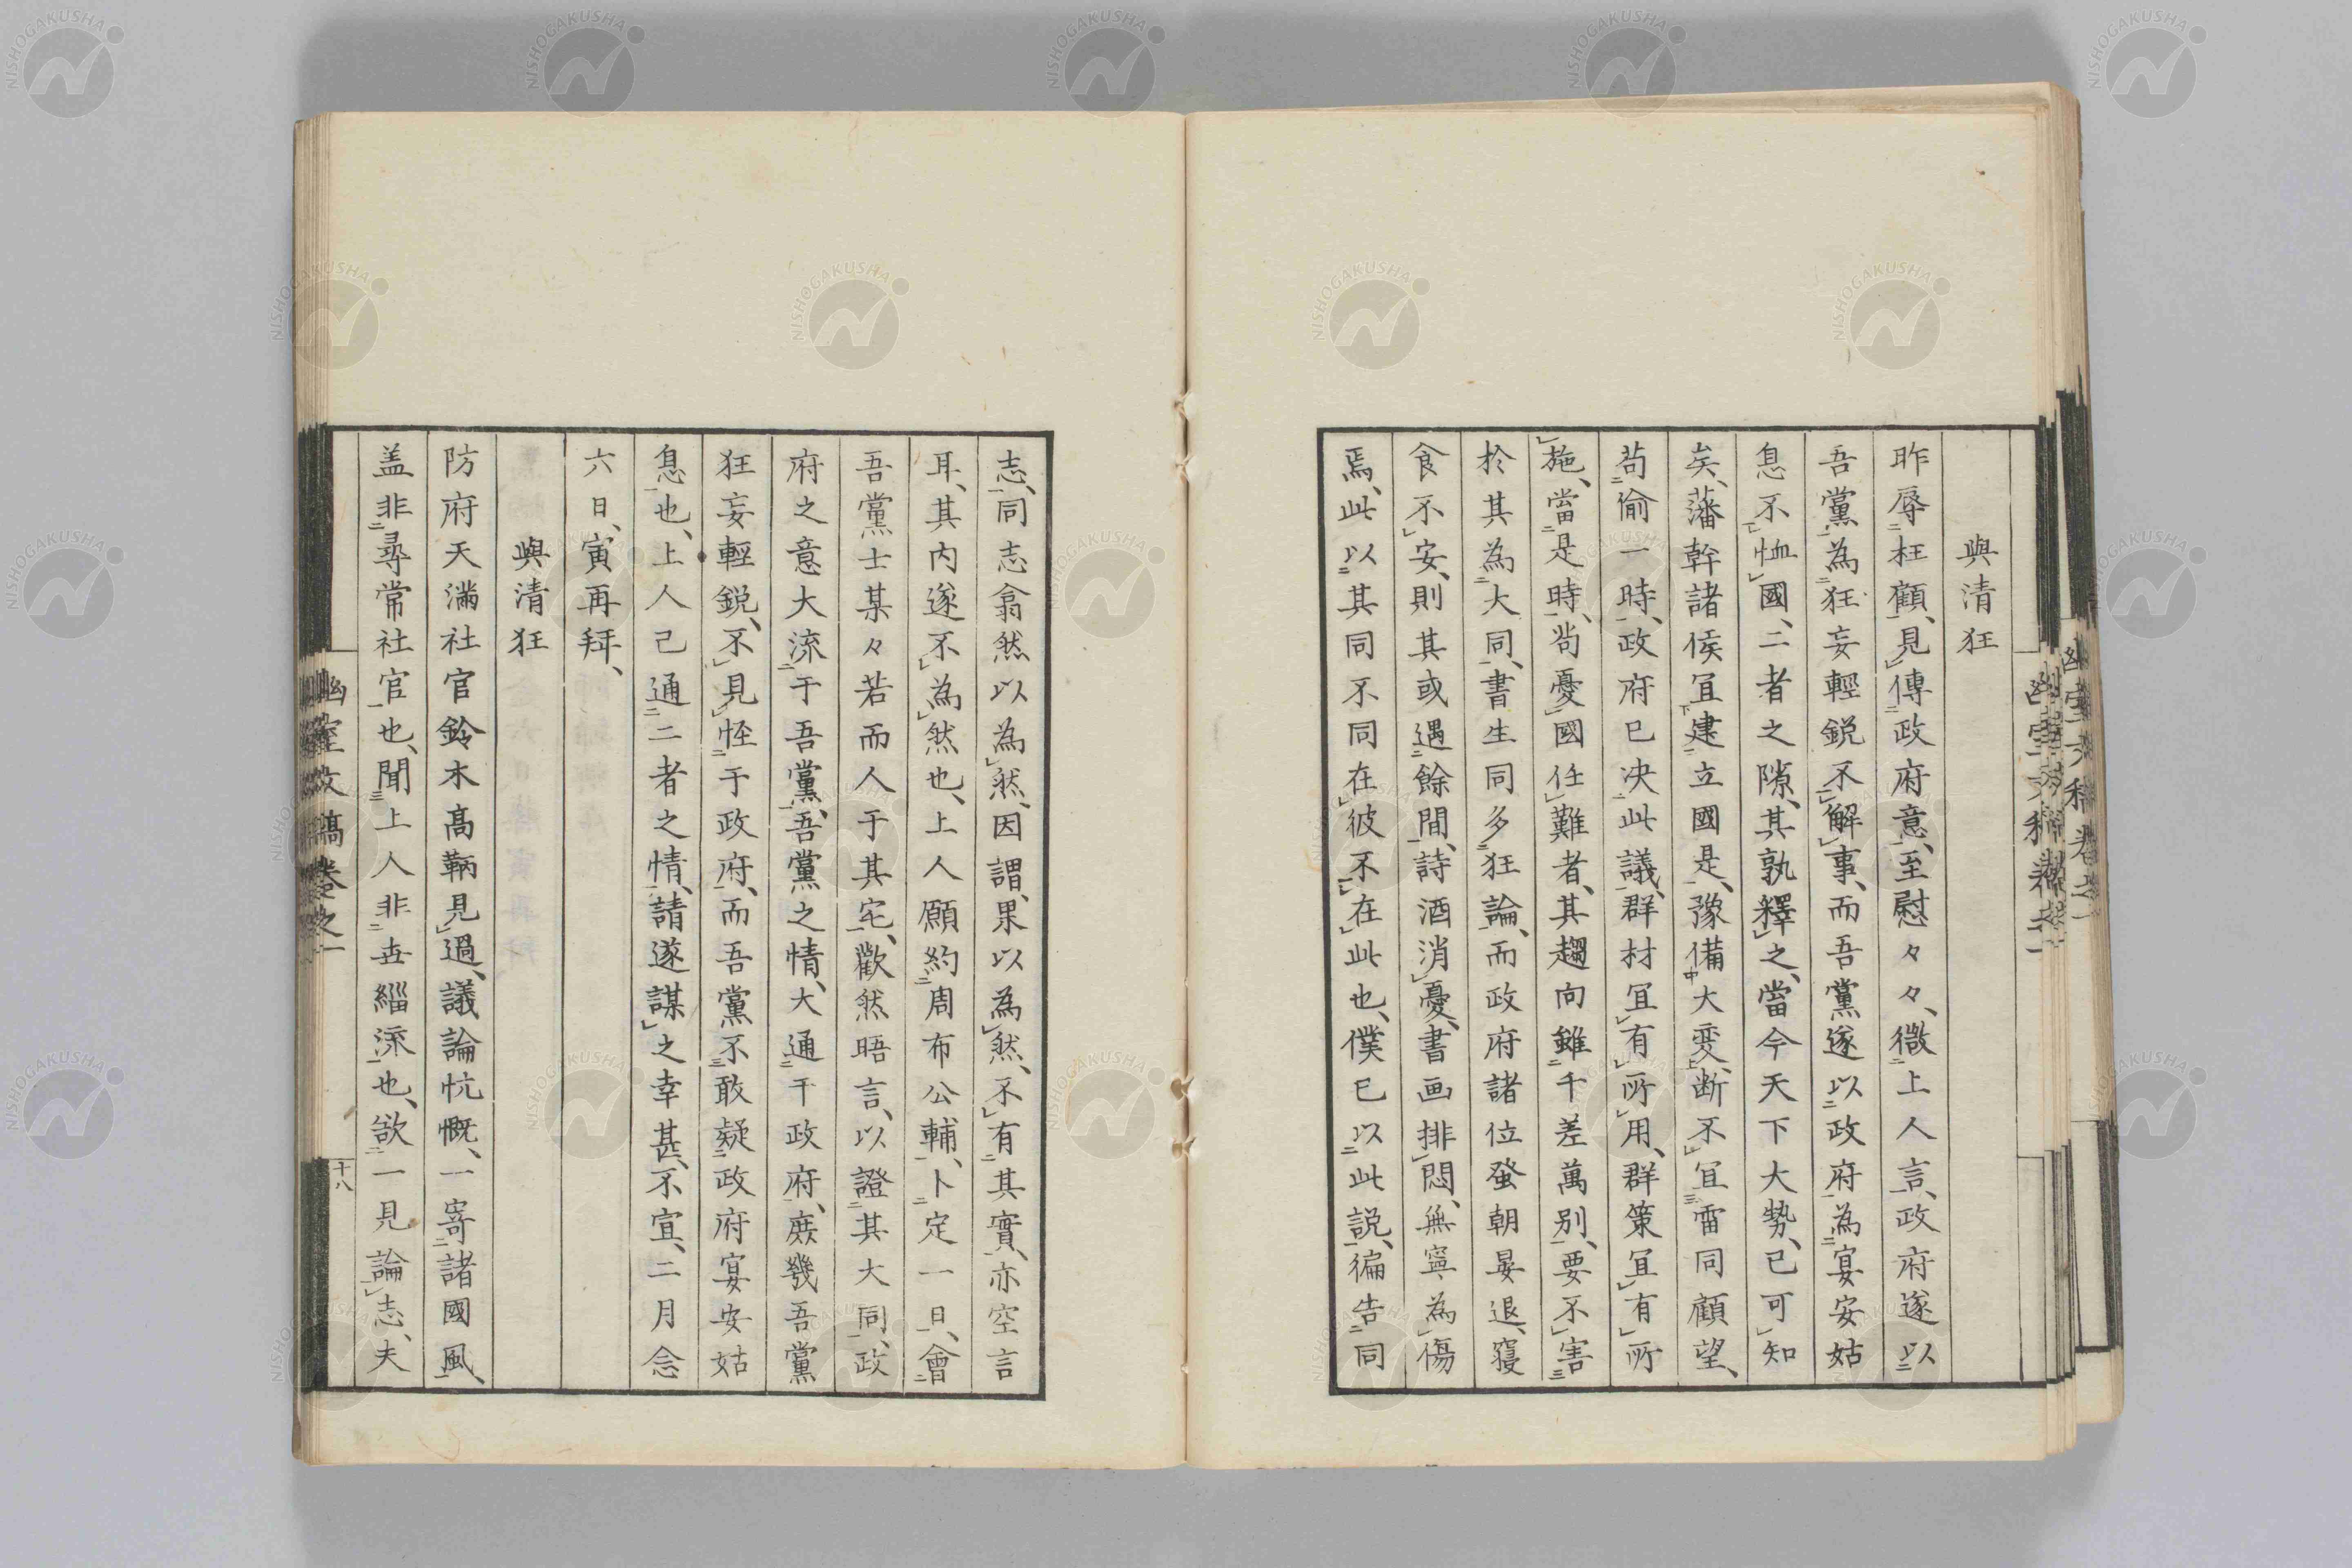 與清狂
昨辱枉顧、見傳政府意、至慰々々、微上人言、政府遂以
吾黨為狂妄輕鋭不解事、而吾黨遂以政府為宴安姑
息不恤國、二者之隙、其孰釋之、當今天下大勢、已可知
矣、藩幹諸侯宜建立國是、豫備大変、断不宜雷同顧望、
苟偷一時、政府已决此議、群材宜有所用、群策宜有所
施、當是時、尚憂國任難者、其趨向雖千差萬別、要不害
於其為大同、書生同多狂論、而政府諸位蚤朝晏退、寝
食不安、則其或遇餘間、詩酒消憂、書画排悶、無寧為傷
焉、此以其同不同在彼不在此也、僕已以此説、徧告同
志、同志翕然以為然、因謂、果以為然、不有其實、亦空言
耳、其内遂不為然也、上人願約周布公輔、卜定一日、會
吾黨士某々若而人于其宅、歡然晤言、以證其大同、政
府之意大流于吾黨、吾黨之情、大通于政府、庶幾吾黨
狂妄輕鋭、不見怪于政府、而吾黨不敢疑政府宴安姑
息也、上人己通二者之情、請遂謀之幸甚、不宜、二月念
六日、寅再拜、
與清狂
防府天滿社官鈴木高鞆見過、議論忼慨、一寄諸國風、
盖非尋常社官也、聞上人非世緇流也、欲一見論志、夫
幽室文稿卷之一
十八